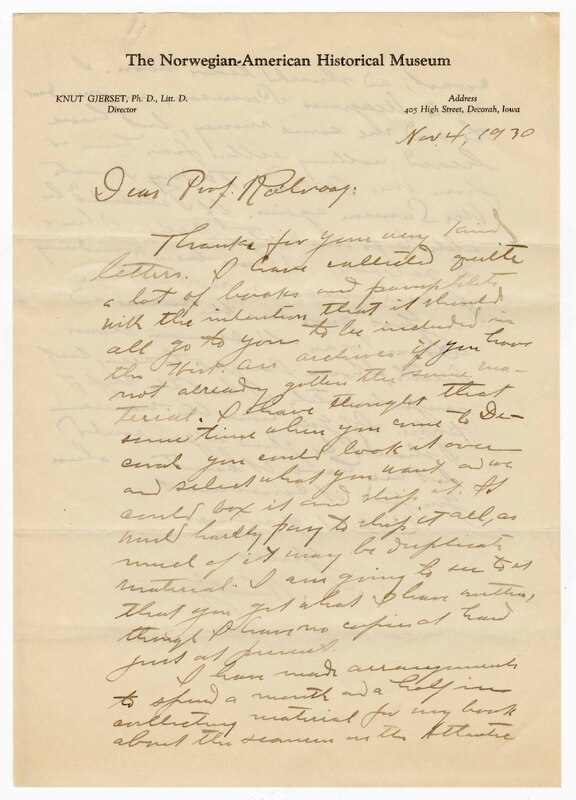 The Norwegian-American Historical Museum
KNUT GJERSET, Ph. D., Litt. D.
Director
Address
405 High Street, Decorah, Iowa
Nov. 4, 1930
Dear Prof. Rølvaag:
Thanks for your very kind
letters. I have collected quite
a lot of books and pamphlets
with the intention that it should
all go to you to be included in
the Hist. Ass. archives if you have
not already gotten the same ma-
terial. I have thought that
some time when you come to De-
corah you could look it over
and select what you want and we
could box it and ship it. It
would hardly pay to ship it all, as
much of it may be duplicate
material. I am going to see to it
that you get what I have written,
though I have no copies at hand
just at present.
I have made arrangements
to spend a month and a half in
collecting material for my book
about the seamen on the Atlantic